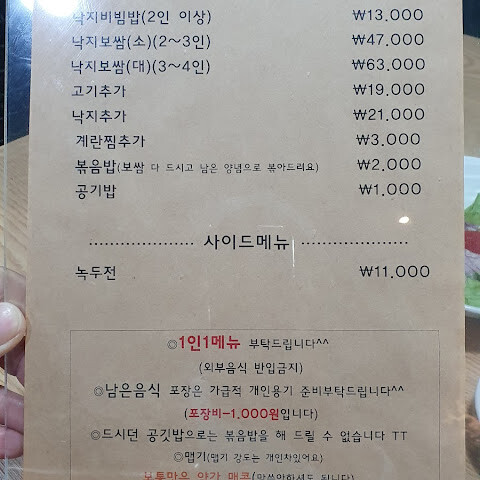 낙지비빔밥(2인 이상) ₩13,000
낙지보쌈(소)(2~3인) ₩47,000
낙지보쌈(대)(3~4인) ₩63,000
고기추가 ₩19,000
낙지추가 ₩21,000
계란찜추가 ₩3,000
볶음밥(보쌈 다 드시고 남은 양념으로 볶아드려요) ₩2,000
공기밥 ₩1,000
사이드메뉴
녹두전 ₩11,000
◎1인1메뉴 부탁드립니다^^
(외부음식 반입금지)
◎남은음식 포장은 가급적 개인용기 준비부탁드립니다^^
(포장비-1,000원입니다)
◎드시던 공깃밥으로는 볶음밥을 해 드릴 수 없습니다 TT
◎맵기(맵기 강도는 개인차있어요)
보통맛은 약간 매콤(말씀안하셔도 됩니다)